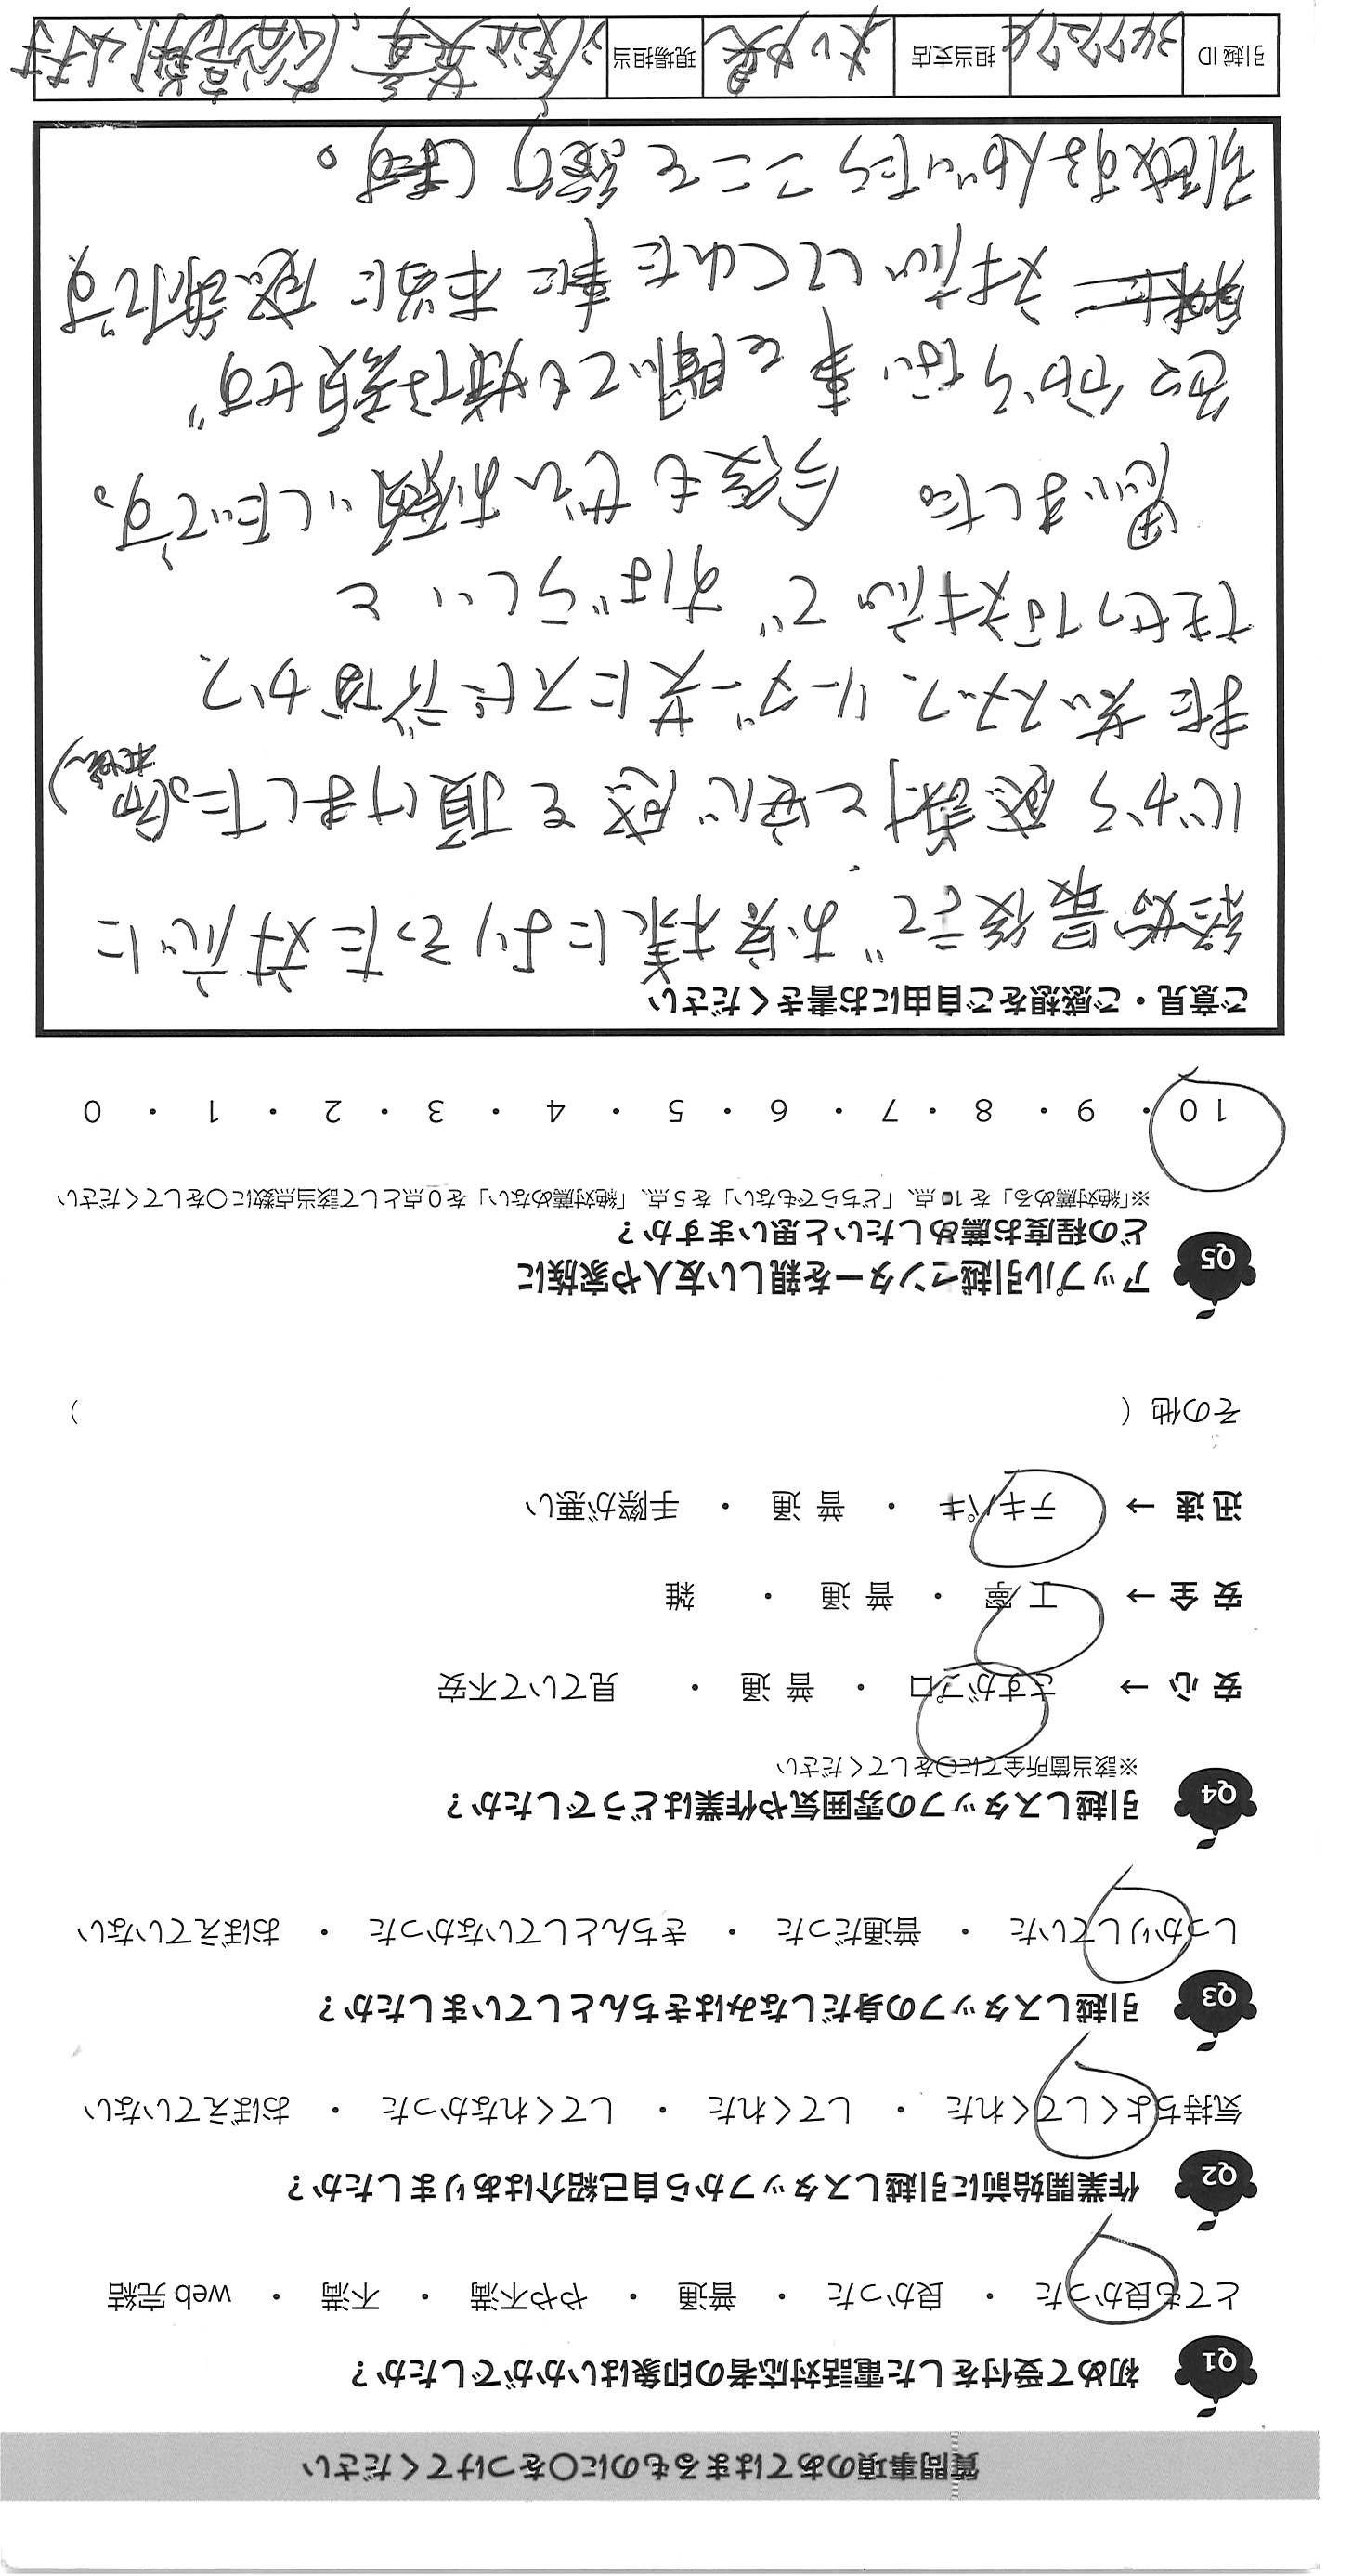 質問事項のあてはまるものに〇をつけてください
Q1 初めて受付をした電話対応者の印象はいかがでしたか？
とても良かった ・ 良かった ・ 普通 ・ やや不満 ・ 不満 ・ web 完結
Q2 作業開始前に引越しスタッフから自己紹介はありましたか？
気持ちよくしてくれた ・ してくれた ・ してくれなかった ・ おぼえていない
Q3 引越しスタッフの身だしなみはきちんとしていましたか？
しっかりしていた ・ 普通だった ・ きちんとしていなかった ・ おぼえていない
Q4 引越しスタッフの雰囲気や作業はどうでしたか？
※該当箇所全てに〇をしてください
安 心 → さすがプロ ・ 普 通 ・ 見ていて不安
安 全 → 丁 寧 ・ 普 通 ・ 雑
迅 速 → テキパキ ・ 普 通 ・ 手際が悪い
その他（ ）
Q5 アップル引越センターを親しい友人や家族に
どの程度お薦めしたいと思いますか？
※「絶対薦める」を 10 点、「どちらでもない」を 5 点、「絶対薦めない」を 0 点として該当点数に〇をしてください
10 ・ 9 ・ 8 ・ 7 ・ 6 ・ 5 ・ 4 ・ 3 ・ 2 ・ 1 ・ 0
ご意見・ご感想をご自由にお書きください
終始最後まで お客様によりそった対応に
心から感謝と安心感を頂けました。
また若いスタッフ、リーダー共にスピーディ且つ
たせつな対応で すばらしいと
思いました。 今後もぜひお願いしたいです。
色々分からない事を聞いても嫌な顔せず
対応してくれた事に 本当に感謝です
引越する人がいたらここを紹介します。
引越 ID 担当支店 現場担当